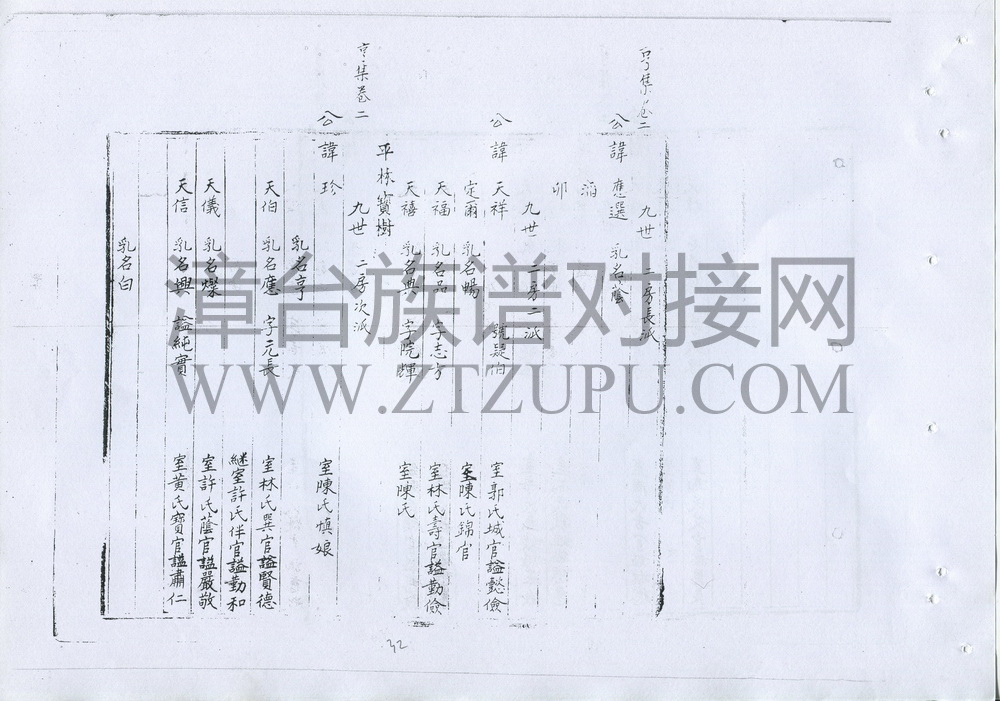 亨集卷二
九世 二房長派
公諱應選 乳名蔭
滔
卯
九世 二房二派
公諱天祥 號疑伯 室郭氏城官謚懿儉
定爾 乳名暢 室陳氏錦官
天福 乳名品 字志方 室林氏壽官謚勤儉
天禧 乳名興 字院輝 室陳氏
平栋寶樹
亨集卷二
九世 二房次派
公諱珍 室陳氏慎娘
乳名亨
天伯 乳名應 字元長 室林氏巽官謚賢德
繼室許氏伴官謚勤和
天儀 乳名燦 室許氏蔭官謚嚴敬
天信 乳名興 謚純實 室黃氏寶官謚肅仁
乳名白
32
漳台族谱对接网
WWW.ZTZUPU.COM